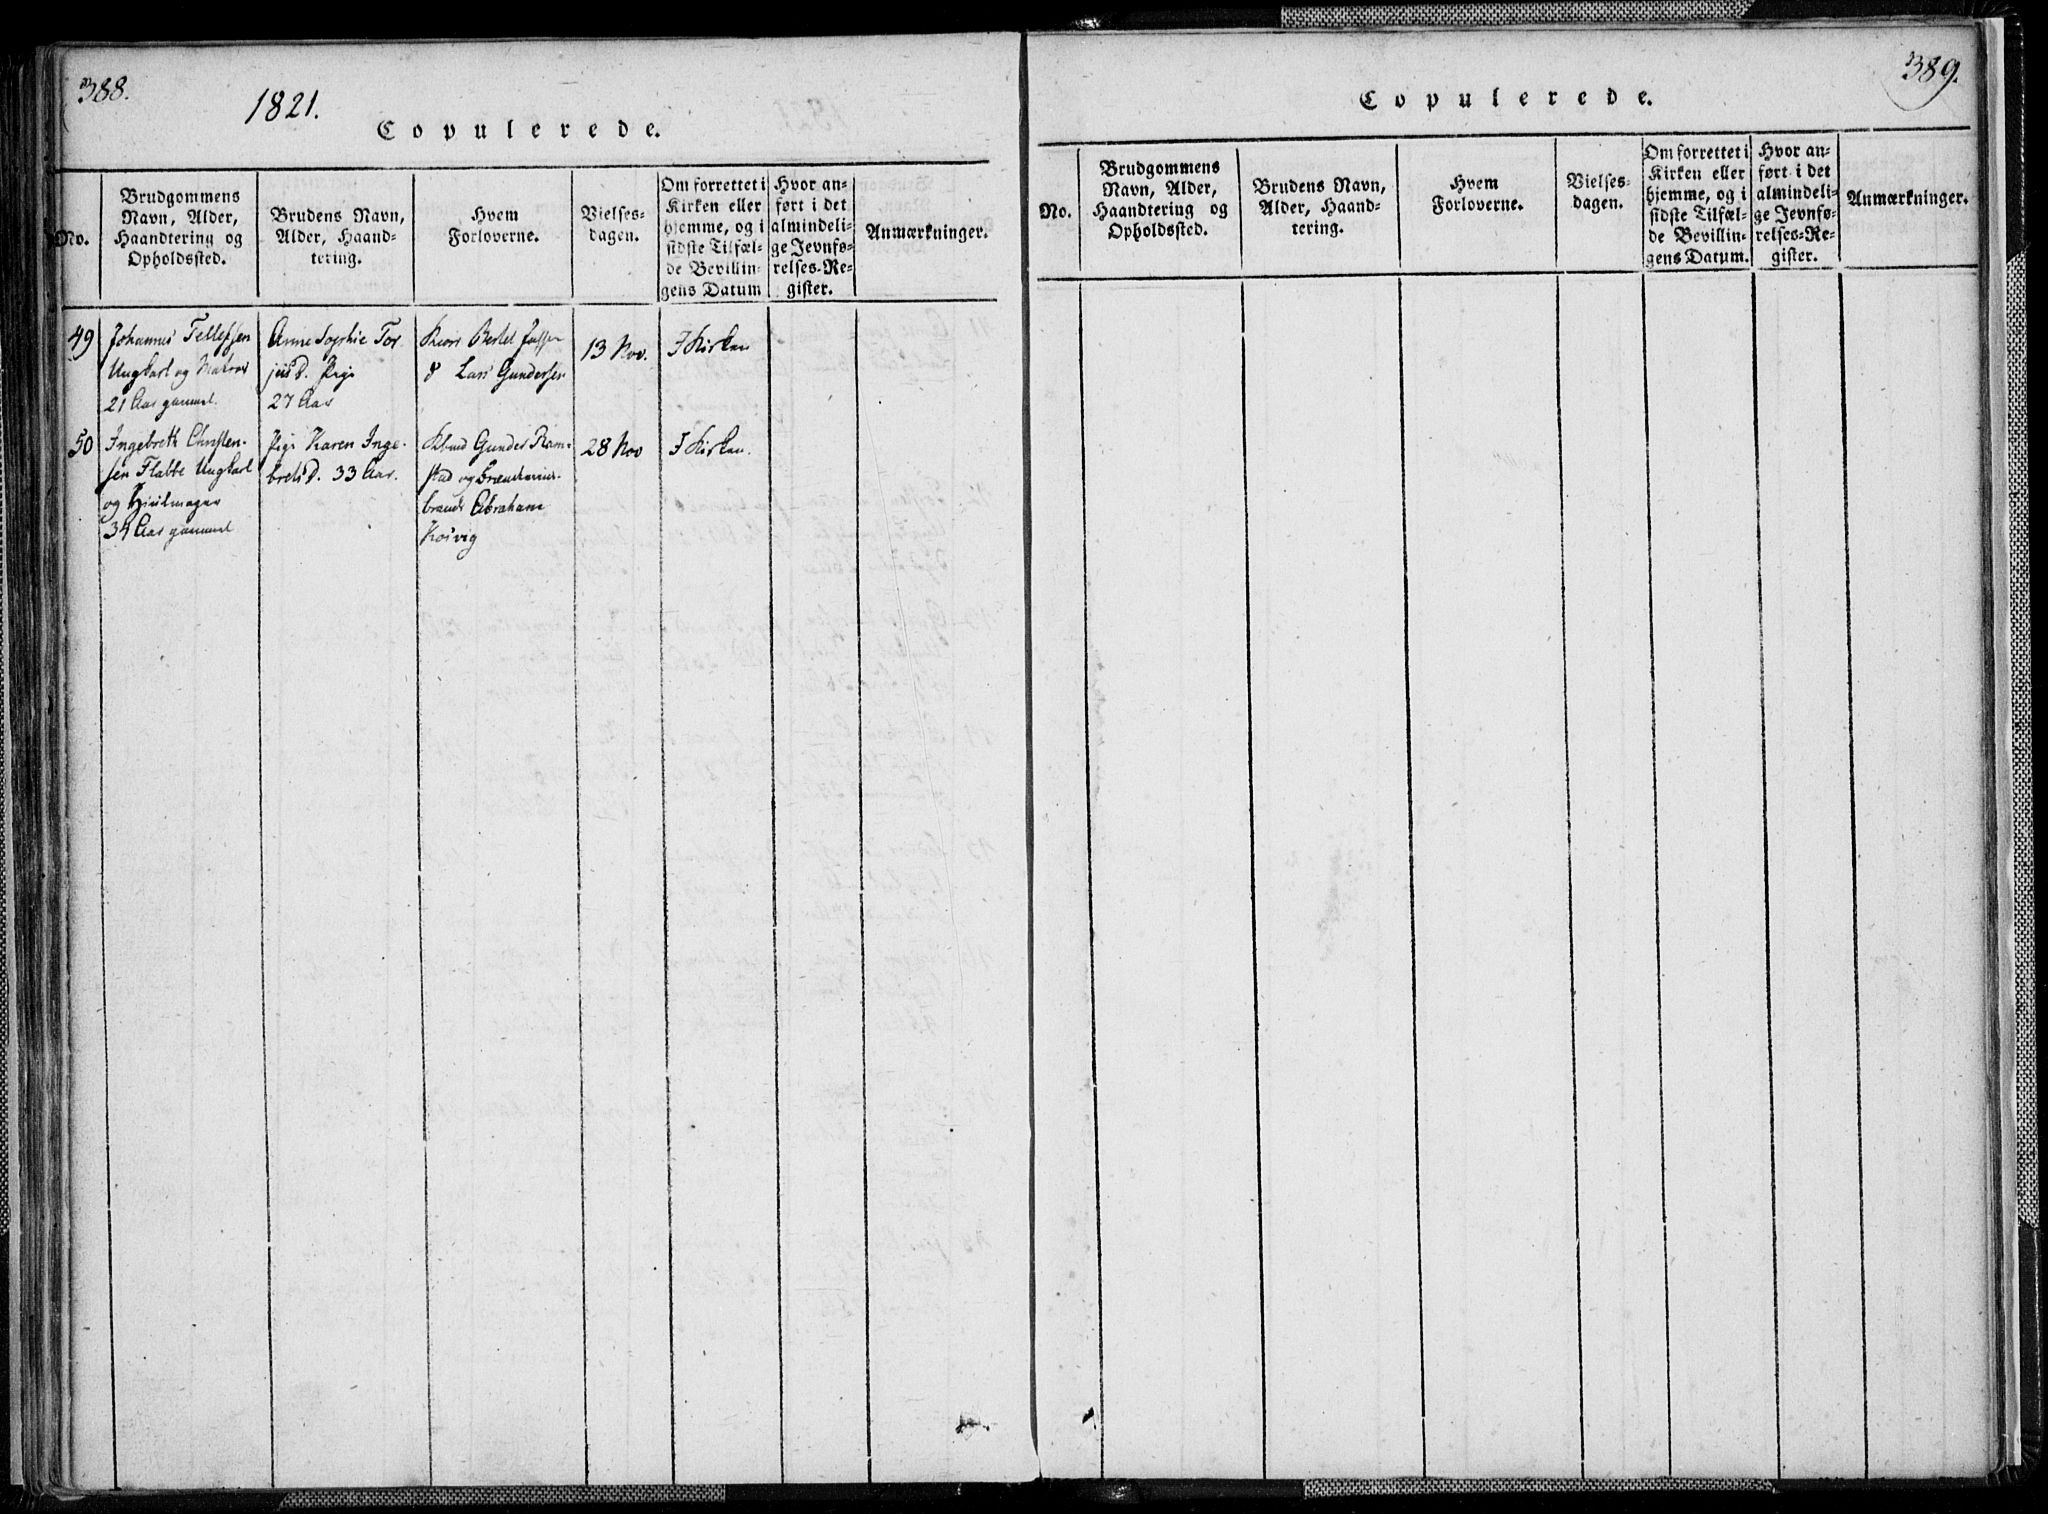 388.
1821.
Copulerede.
No.
Brudgommens
Navn, Alder,
Haandtering og
Opholdssted.
Brudens Navn,
Alder, Haand-
tering.
Hvem
Forloverne.
Vielses-
dagen.
Om forrettet i
Kirken eller
hjemme, og i
sidste Tilfæl-
de Bevillin-
gens Datum
Hvor an-
ført i det
almindeli-
ge Jevnfø-
relses-Re-
gister.
Anmærkninger.
49
Johannes Tellefsen
Ungkarl og Matros
21 Aar gammel.
Anne Sophie Tor
jusD. Pige
27 Aar
Bertel
& Lars Gundersen
13 Nov.
I Kirken
50
Ingebreth Christen-
sen Flabbe Ungkarl
og Hiulmager
34 Aar gammel
Pige Karen Inge-
bretsD. 33 Aar.
Gunder Ram-
stad og
Abraham
28 Nov
I Kirken.
389.
Copulerede.
No.
Brudgommens
Navn, Alder,
Haandtering og
Opholdssted.
Brudens Navn,
Alder, Haand-
tering.
Hvem
Forloverne.
Vielses-
dagen.
Om forrettet i
Kirken eller
hjemme, og i
sidste Tilfæl-
de Bevillin-
gens Datum.
Hvor an-
ført i det
almindeli-
ge Jevnfø-
relses-Re-
gister.
Anmærkninger.